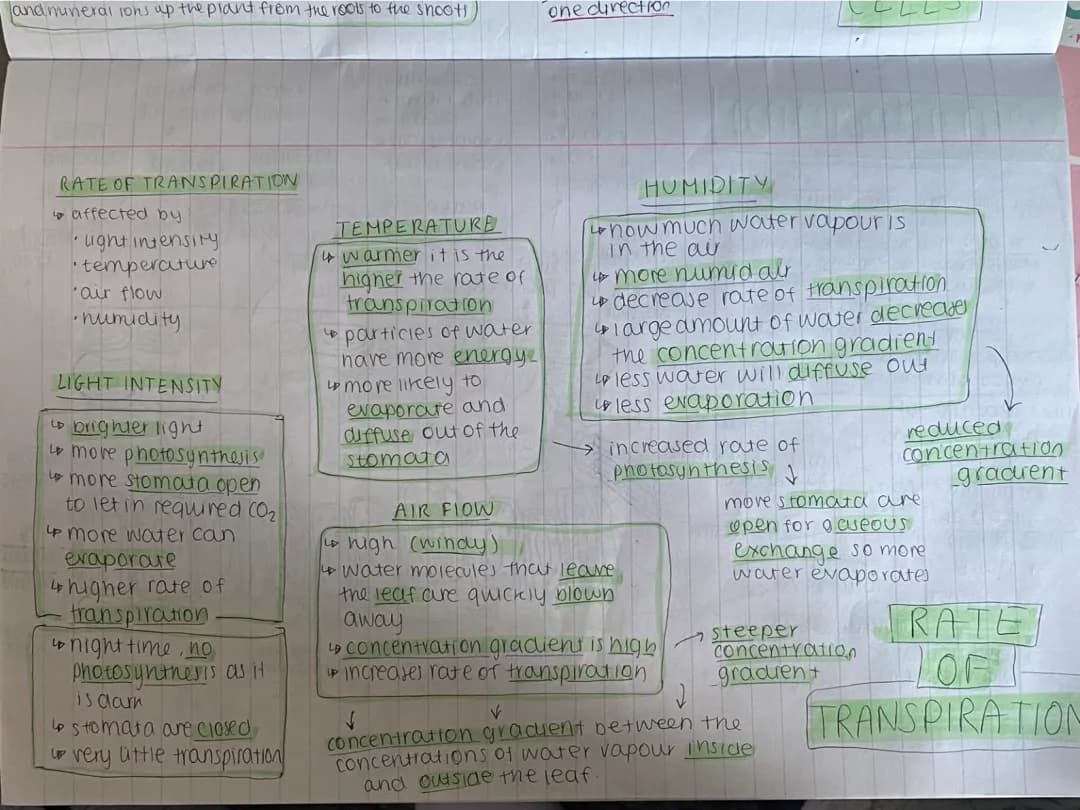 and mineral ions up the plant from the roots to the shoots
one direction
CELLS
RATE OF TRANSPIRATION
↳ affected by
• light intensity
• temperature
• air flow
• humidity
LIGHT INTENSITY
↳ brighter light
↳ more photosynthesis
↳ more stomata open
to let in required CO₂
↳ more water can
evaporate
↳ higher rate of
transpiration
↳ night time, no
photosynthesis as it
is dark
↳ stomata are closed
↳ very little transpiration
TEMPERATURE
↳ warmer it is the
higher the rate of
transpiration
↳ particles of water
have more energy
↳ more likely to
evaporate and
diffuse out of the
stomata
→ increased rate of
photosynthesis ↓
more stomata are
open for gaseous
exchange so more
water evaporates
AIR FLOW
↳ high (windy)
↳ water molecules that leave
the leaf are quickly blown
away
↳ concentration gradient is high
↳ increases rate of transpiration
→ steeper
concentration
gradient
concentration gradient between the
concentrations of water vapour inside
and outside the leaf.
HUMIDITY
↳ how much water vapour is
in the air
↳ more humid air
↳ decrease rate of transpiration
↳ large amount of water decreases
the concentration gradient
↳ less water will diffuse out
↳ less evaporation
reduced
concentration
gradient
RATE
OF
TRANSPIRATION